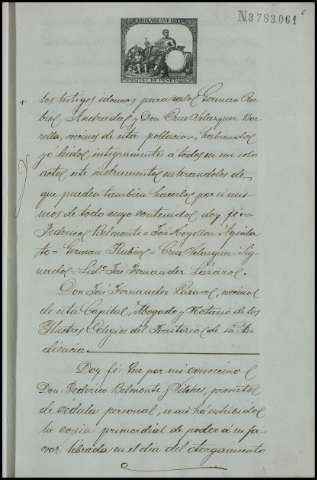 N.3783.061
los testigos idoneos para serlo German Ru
bial Andrada y Don Cruz Velazquez
vecinos de esta poblacion; habiendoles
yo leido integramente a todos en un solo
acto este instrumento enterandoles de
que pueden tambien hacerlo por si mis
mos de todo cuyo contenido doy fe=
Federico Belmonte= José
to= German Rubial= Cruz Velazquez= Sig
nado= Licdo José Fernandez
Don José Fernandez vecino
de esta Capital, Abogado y Notario de los
Ilustres Colegios del Territorio de su Au
diencia
Doy fe: Que por mi conocimo
Don Federico Belmonte y Vilches, provisto
de cedula personal, se me ha exhibido
la copia primordial de poder a su fa
vor librada en el dia del otorgamiento